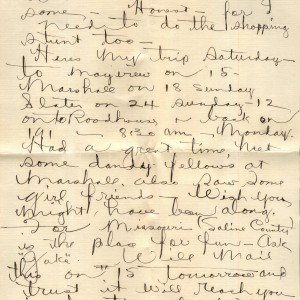 some - Honest - for I
need to do the shopping
stunt too -
Heres my trip Saturday -
to Mayview on 15 -
Marshall on 18 Sunday
Slater on 24 Sunday - 12
on to Roodhouse, & back on
19 - 8:30 am, Monday.
Had a great time, met
some dandy fellows at
Marshall, also saw some
girl friends - Wish you
might have been along.
For Missouri (Saline County)
is the place for fun - Ask
"Jack". Will Mail
this on "15 tomorrow and
trust it will reach you